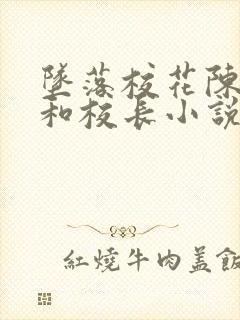 墜落校花陳
和校長小說
紅燒牛肉蓋飯